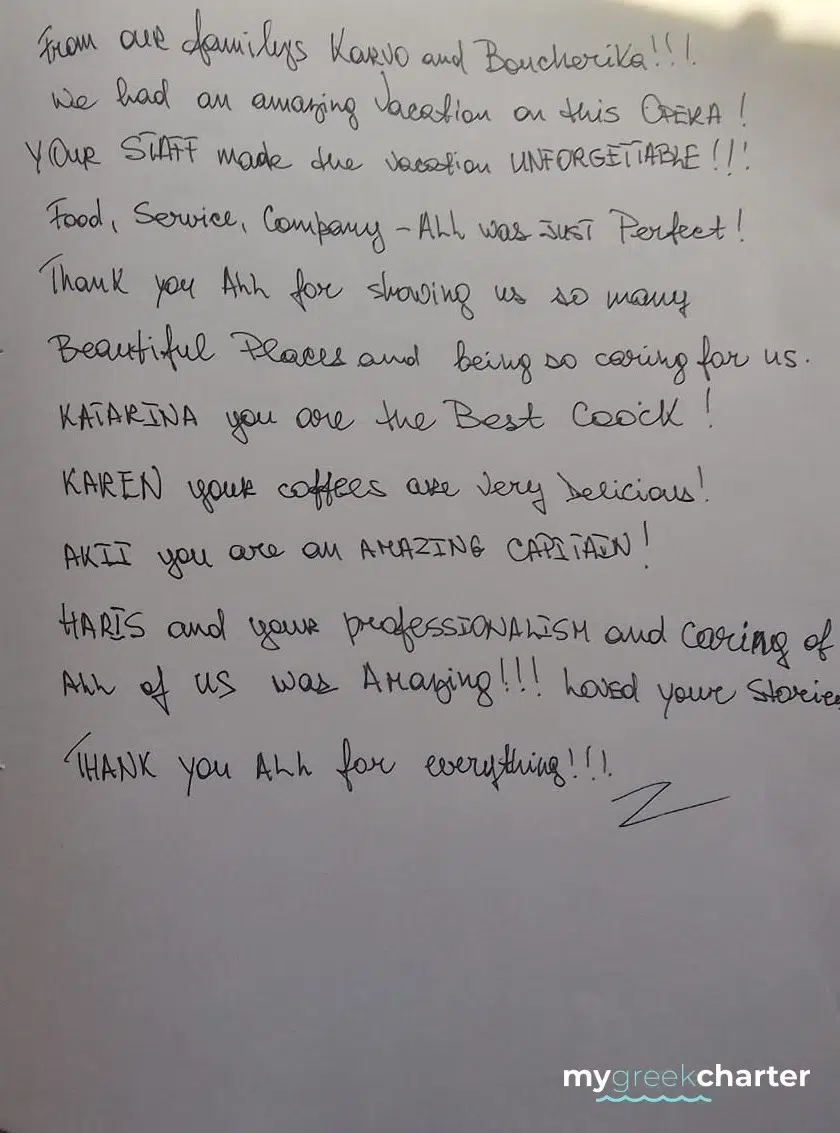 From our familys Karvo and Boucherika!!!.
We had an amazing Vacation on this OPERA!
YOUR STAFF made the vacation UNFORGETTABLE!!!
Food, Service, Company - ALL was JUST Perfect!
Thank you ALL for showing us so many
Beautiful Places and being so caring for us.
KATARINA you are the Best Coock!
KAREN your coffees are very Delicious!
AKII you are an AMAZING CAPITAIN!
HARIS and your professIONALISM and caring of
ALL of US was Amazing!!! Loved your stories
THANK you ALL for everything!!!.
mygreekcharter